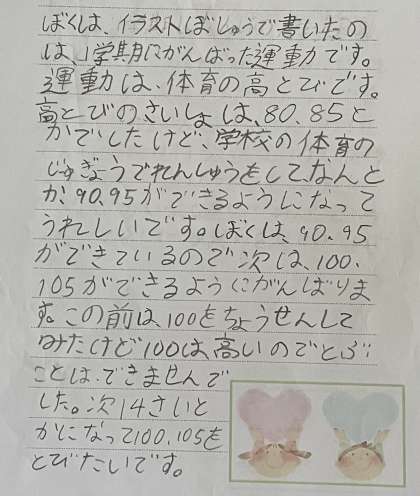 ぼくは、イラストぼしゅうで書いたの
は、1学期にがんばった運動です。
運動は、体育の高とびです。
高とびのさいしょは、80.85と
かでしたけど、学校の体育の
じゅぎょうでれんしゅうをして、なんと
か、90.95ができるようになって
うれしいです。ぼくは、90.95
ができているので次は、100.
105ができるようにがんばりま
す。この前は、100をちょうせんして
みたけど100は、高いのでとぶ
ことは、できませんで
した。次14さいと
かになって100.105を
とびたいです。